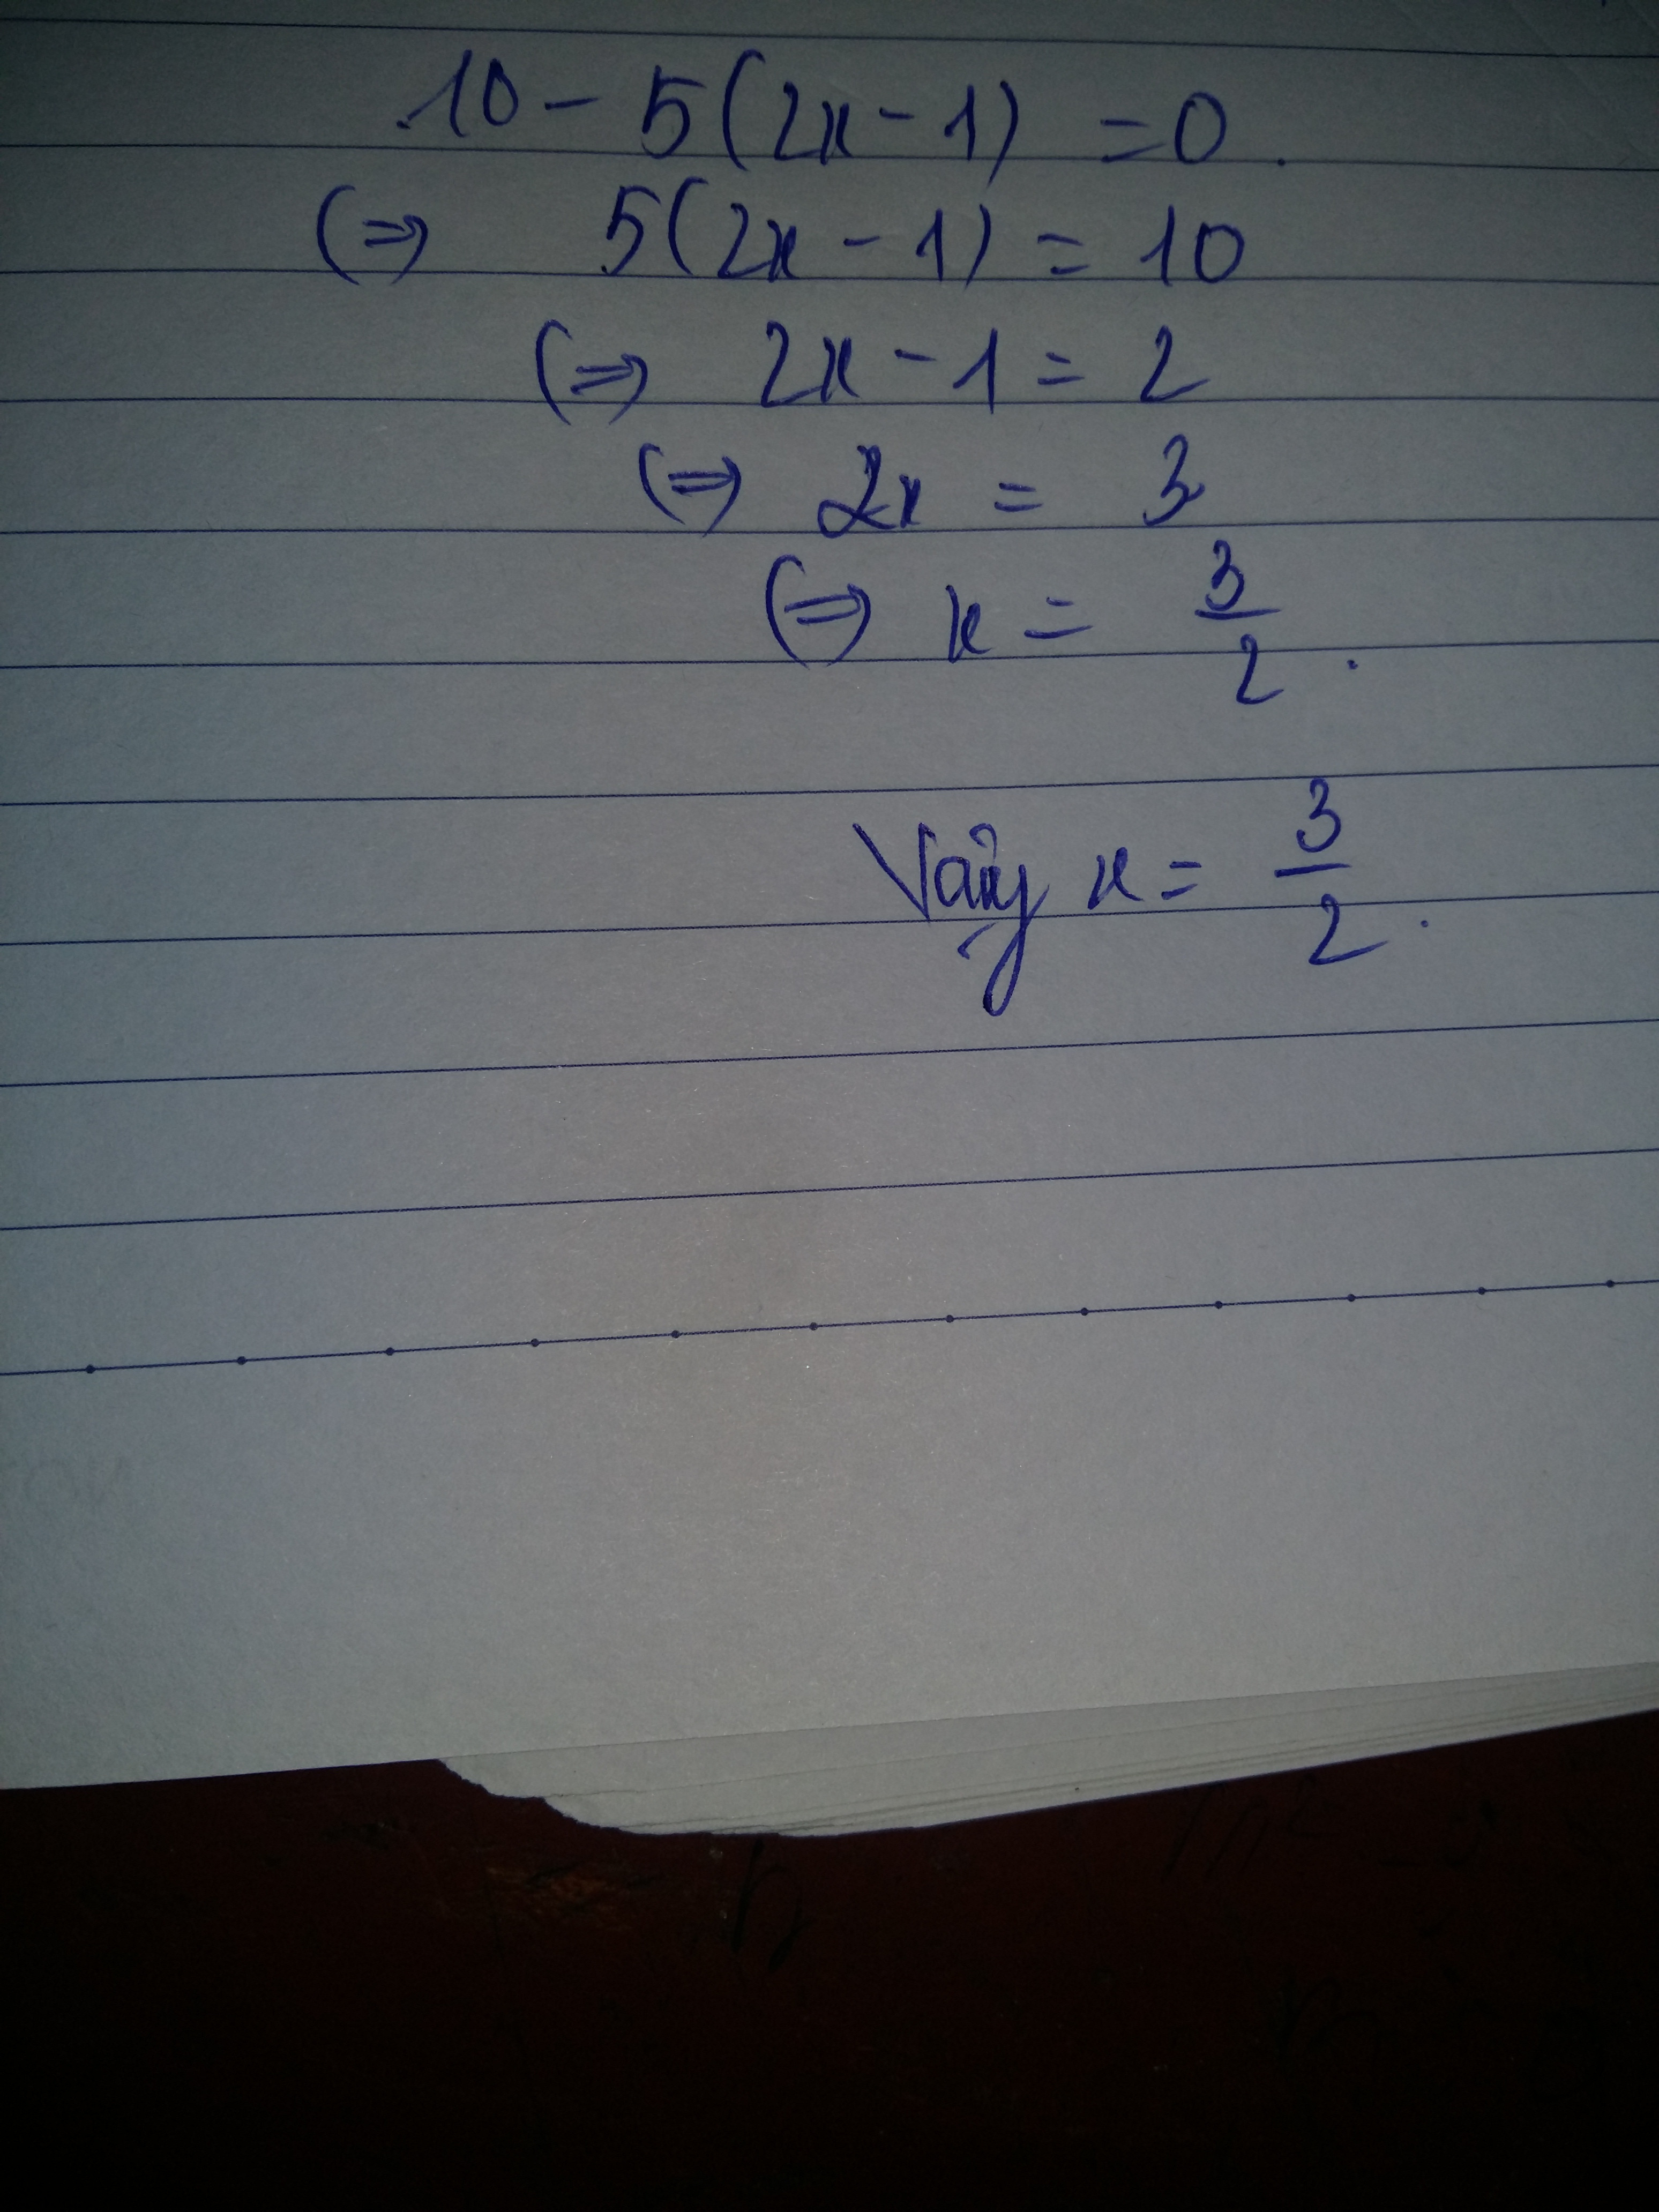 10 - 5(2x - 1) = 0.
(=) 5(2x - 1) = 10
(=) 2x - 1 = 2
(=) 2x = 3
(=) x = 3/2.
Vậy x = 3/2.